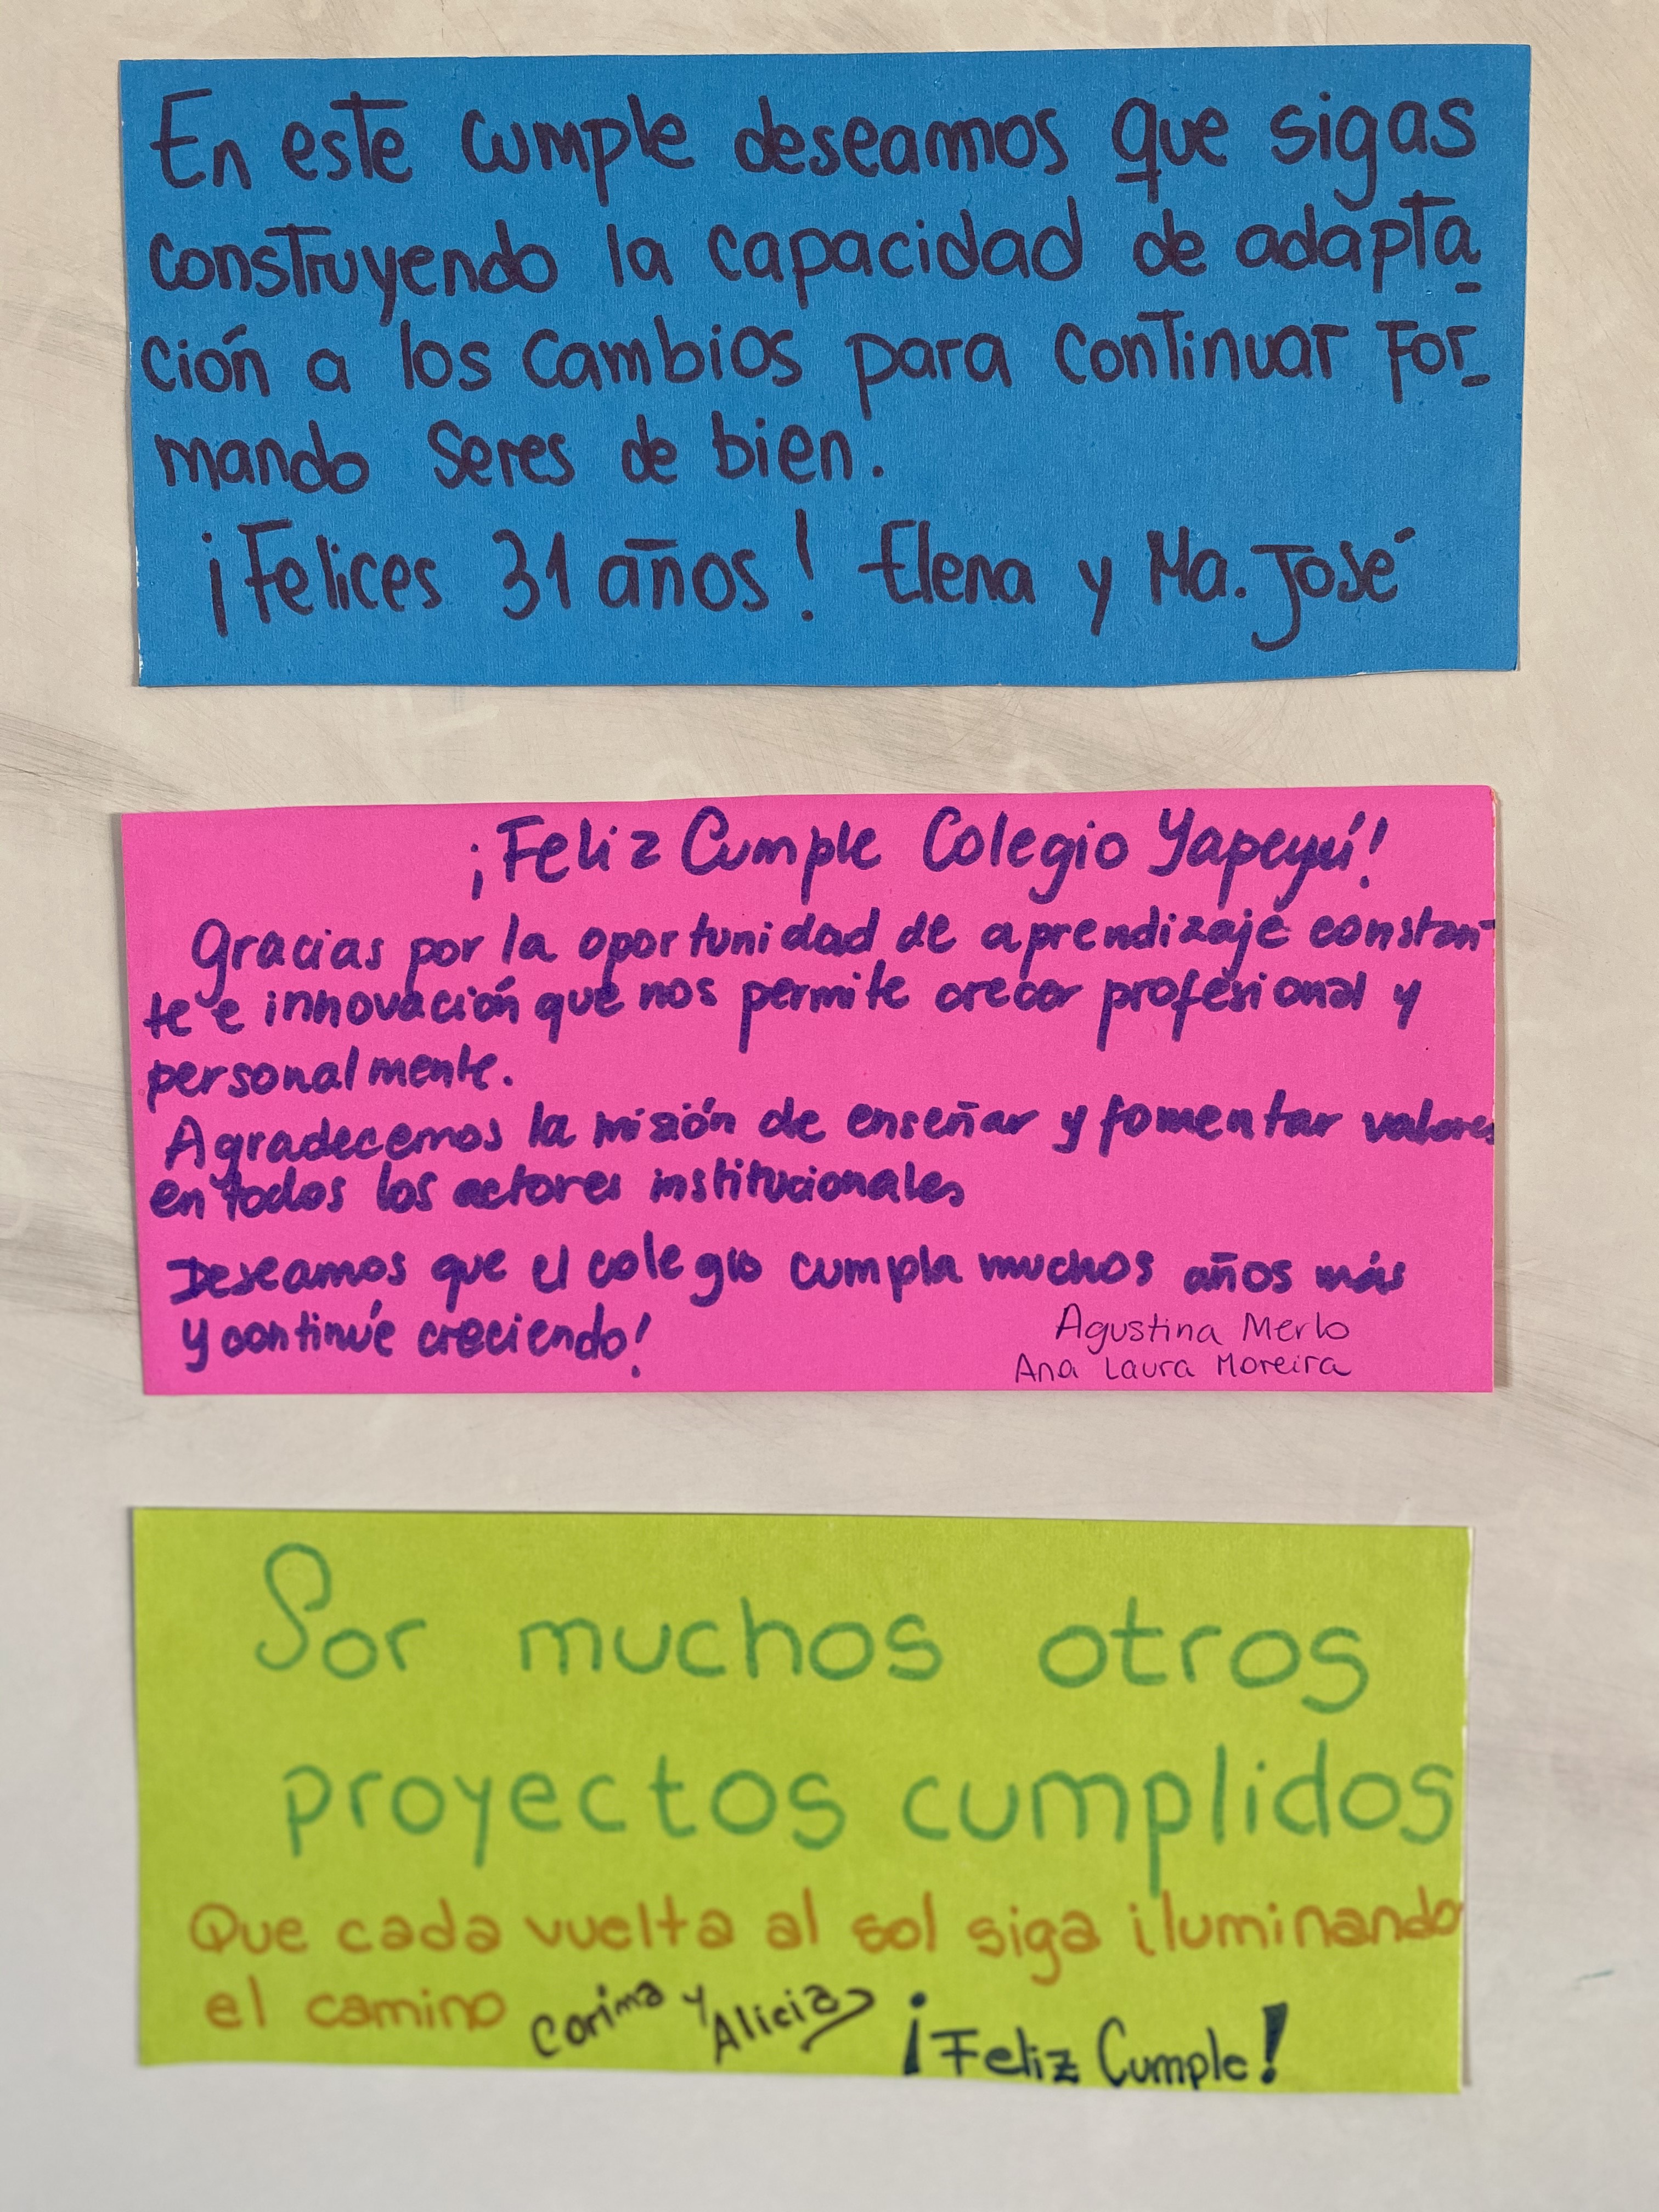 En este cumple deseamos que sigas
construyendo la capacidad de adapta-
ción a los cambios para continuar for-
mando seres de bien.
¡Felices 31 años! Elena y Ma. José
¡Feliz Cumple Colegio Yapeyú!
Gracias por la oportunidad de aprendizaje constan-
te e innovación que nos permite crecer profesional y
personalmente.
Agradecemos la misión de enseñar y fomentar valores
en todos los actores institucionales
Deseamos que el colegio cumpla muchos años más
y continúe creciendo!
Agustina Merlo
Ana Laura Moreira
Por muchos otros
proyectos cumplidos
Que cada vuelta al sol siga iluminando
el camino Corima y Alicia ¡Feliz Cumple!